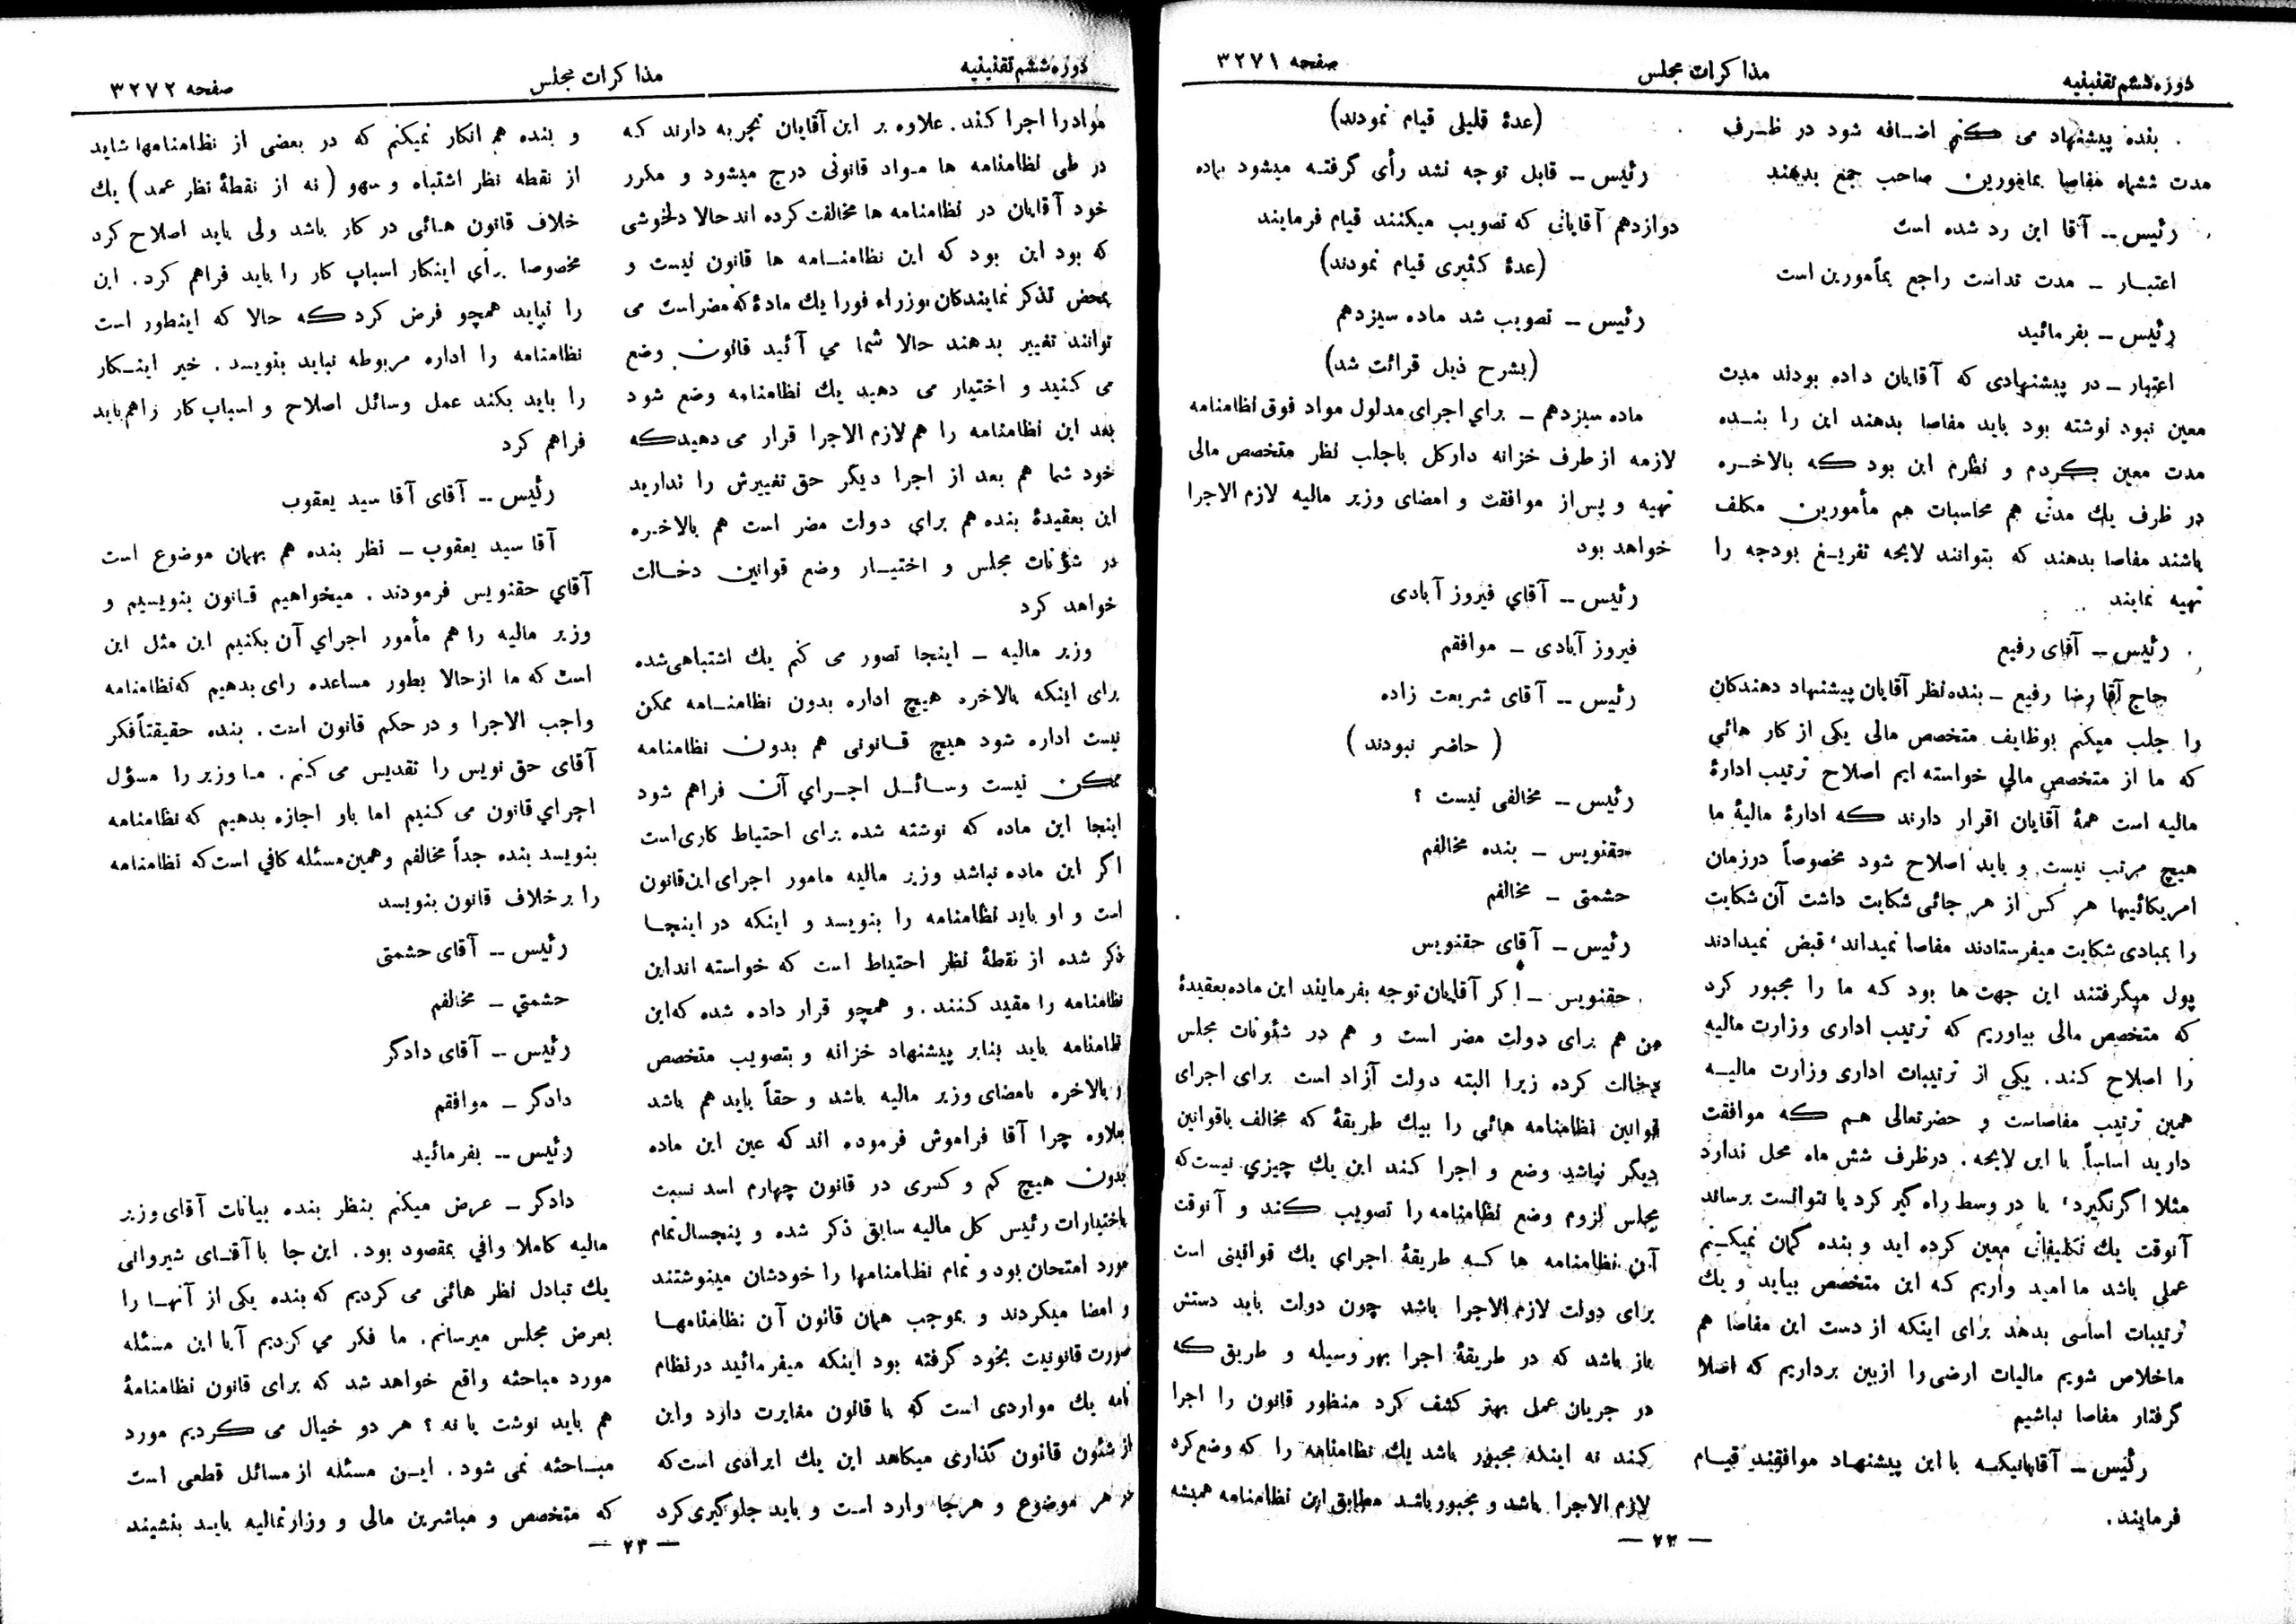 دوره ششم تقنینیه
مذاکرات مجلس
صفحه ۳۲۷۱
بنده پیشنهاد می کنم اضافه شود در ظرف
مدت ششماه مفاصا بمامورین صاحب جمع بدهند
رئیس – آقا این رد شده است
اعتبار – مدت نداشت راجع بمأمورین است
رئیس – بفرمائید
اعتبار – در پیشنهادی که آقایان داده بودند مدت
معین نبود نوشته بود باید مفاصا بدهند این را بنده
مدت معین کردم و نظرم این بود که بالاخره
در ظرف یك مدتی هم محاسبات هم مأمورین مکلف
باشند مفاصا بدهند که بتوانند لایحه تفریغ بودجه را
تهیه نمایند
رئیس – آقای رفیع
حاج آقا رضا رفیع – بنده نظر آقایان پیشنهاد دهندکان
را جلب میکنم بوظایف متخصص مالی یکی از کار هائی
که ما از متخصص مالي خواسته ایم اصلاح ترتیب ادارهٔ
مالیه است همهٔ آقایان اقرار دارند که ادارهٔ مالیهٔ ما
هیچ مرتب نیست و باید اصلاح شود مخصوصاً درزمان
امریکائیها هر کس از هر جائی شکایت داشت آن شکایت
را بمبادی شکایت میفرستادند مفاصا نمیداند، قبض نمیدادند
پول میگرفتند این جهت ها بود که ما را مجبور کرد
که متخصص مالی بیاوریم که ترتیب اداری وزارت مالیه
را اصلاح کند. یکي از ترتیبات اداری وزارت مالیه
همین ترتیب مفاصاست و حضرتعالی هم که موافقت
دارید اساساً با این لایحه. درظرف شش ماه محل ندارد
مثلا اگر نگیرد، یا در وسط راه گیر کرد یا نتوانست برساند
آنوقت یك تکلیفاتی معین کرده اید و بنده گمان نمیکنم
عملي باشد ما امید واریم که این متخصص بیاید و یك
ترتیبات اساسی بدهد برای اینکه از دست این مفاصا هم
ماخلاص شویم مالیات ارضی را ازبین برداریم که اصلا
گرفتار مفاصا نباشیم
رئیس – آقایانیکه با این پیشنهاد موافقند قیام
فرمایند.
(عدهٔ قلیلی قیام نمودند)
رئیس – قابل توجه نشد رأی گرفته میشود بماده
دوازدهم آقایانی که تصویب میکنند قیام فرمایند
(عدهٔ کثیری قیام نمودند)
رئیس – تصویب شد ماده سیزدهم
(بشرح ذیل قرائت شد)
ماده سیزدهم – براي اجرای مدلول مواد فوق نظامنامه
لازمه از طرف خزانه دارکل باجلب نظر متخصص مالی
تهیه و پس از موافقت و امضای وزیر مالیه لازم الاجرا
خواهد بود
رئیس – آقاي فیروز آبادی
فیروز آبادی – موافقم
رئیس – آقای شریعت زاده
( حاضر نبودند )
رئیس – مخالفی نیست ؟
حقنویس – بنده مخالفم
حشمتی – مخالفم
رئیس – آقای حقنویس
حقنویس – اکر آقایان توجه بفرمایند این ماده بعقیدهٔ
من هم برای دولت مضر است و هم در شئونات مجلس
دخالت کرده زیرا البته دولت آزاد است برای اجرای
قوانین نظامنامه هائی را بیك طریقهٔ که مخالف باقوانین
دیگر نباشد وضع و اجرا کند این یك چیزي نیست که
مجلس لزوم وضع نظامنامه را تصویب کند و آنوقت
آن نظامنامه ها که طریقهٔ اجراي یك قوانینی است
برای دولت لازم الاجرا باشد چون دولت باید دستش
باز باشد که در طریقهٔ اجرا بهر وسیله و طریق که
در جریان عمل بهتر کشف کرد منظور قانون را اجرا
کند نه اینکه مجبور باشد یك نظامنامه را که وضع کرد
لازم الاجرا باشد و مجبور باشد مطابق این نظامنامه همیشه
— ۲۲ —
دوره ششم تقنینیه
مذاکرات مجلس
صفحه ۳۲۷۲
موادرا اجرا کند. علاوه بر این آقایان تجربه دارند که
در طی نظامنامه ها مواد قانونی درج میشود و مکرر
خود آقایان در نظامنامه ها مخالفت کرده اند حالا دلخوشی
که بود این بود که این نظامنامه ها قانون نیست و
بمحض تذکر نمایندکان بوزراء فورا یك مادهٔ که مضر است می
توانند تغییر بدهند حالا شما مي آئید قانون وضع
می کنید و اختیار می دهید یك نظامنامه وضع شود
بعد این نظامنامه را هم لازم الاجرا قرار می دهیدکه
خود شما هم بعد از اجرا دیگر حق تغییرش را ندارید
این بعقیدهٔ بنده هم براي دولت مضر است هم بالاخره
در شؤنات مجلس و اختیار وضع قوانین دخالت
خواهد کرد
وزیر مالیه – اینجا تصور می کنم یك اشتباهی شده
برای اینکه بالاخره هیچ اداره بدون نظامنامه ممکن
نیست اداره شود هیچ قانونی هم بدون نظامنامه
ممکن نیست وسائل اجراي آن فراهم شود
اینجا این ماده که نوشته شده برای احتیاط کاری است
اکر این ماده نباشد وزیر مالیه مامور اجرای این قانون
است و او باید نظامنامه را بنویسد و اینکه در اینجا
ذکر شده از نقطهٔ نظر احتیاط است که خواسته اند این
نظامنامه را مقید کنند. و همچو قرار داده شده که این
نظامنامه باید بنابر پیشنهاد خزانه و بتصویب متخصص
و بالاخره بامضای وزیر مالیه باشد و حقاً باید هم باشد
بعلاوه چرا آقا فراموش فرموده اند که عین این ماده
بدون هیچ کم و کسری در قانون چهارم اسد نسبت
باختیارات رئیس کل مالیه سابق ذکر شده و پنجسال تمام
مورد امتحان بود و تمام نظامنامها را خودشان مینوشتند
و امضا میکردند و بموجب همان قانون آن نظامنامها
صورت قانونیت بخود گرفته بود اینکه میفرمائید درنظام
نامه یك مواردی است که با قانون مغایرت دارد واین
از شئون قانون گذاری میکاهد این یك ایرادی است که
در هر موضوع و هرجا وارد است و باید جلوگیری کرد
و بنده هم انکار نمیکنم که در بعضی از نظامنامها شاید
از نقطه نظر اشتباه و سهو ( نه از نقطهٔ نظر عمد ) یك
خلاف قانون هائی در کار باشد ولی باید اصلاح کرد
مخصوصا برأی اینکار اسباب کار را باید فراهم کرد. این
را نباید همچو فرض کرد که حالا که اینطور است
نظامنامه را اداره مربوطه نباید بنویسد. خیر اینکار
را باید بکند عمل وسائل اصلاح و اسباب کار راهم باید
فراهم کرد
رئیس – آقای آقا سید یعقوب
آقا سید یعقوب – نظر بنده هم بهمان موضوع است
آقاي حقنویس فرمودند. میخواهیم قانون بنویسیم و
وزیر مالیه را هم مأمور اجراي آن بکنیم این مثل این
است که ما از حالا بطور مساعده رای بدهیم که نظامنامه
واجب الاجرا و در حکم قانون است. بنده حقیقتاً فکر
آقای حق نویس را تقدیس می کنم. ما وزیر را مسؤل
اجراي قانون می کنیم اما باو اجازه بدهیم که نظامنامه
بنویسد بنده جداً مخالفم و همین مسئله کافي است که نظامنامه
را بر خلاف قانون بنویسد
رئیس – آقای حشمتی
حشمتي – مخالفم
رئیس – آقای دادگر
دادکر – موافقم
رئیس – بفرمائید
دادکر – عرض میکنم بنظر بنده بیانات آقای وزیر
مالیه کاملا وافي بمقصود بود. این جا با آقای شیروانی
یك تبادل نظر هائی می کردیم که بنده یکی از آنها را
بعرض مجلس میرسانم. ما فکر می کردیم آیا این مسئله
مورد مباحثه واقع خواهد شد که برای قانون نظامنامهٔ
هم باید نوشت یا نه ؟ هر دو خیال می کردیم مورد
مباحثه نمی شود. این مسئله از مسائل قطعی است
که متخصص و مباشرین مالی و وزارتمالیه باید بنشینند
— ۲۳ —